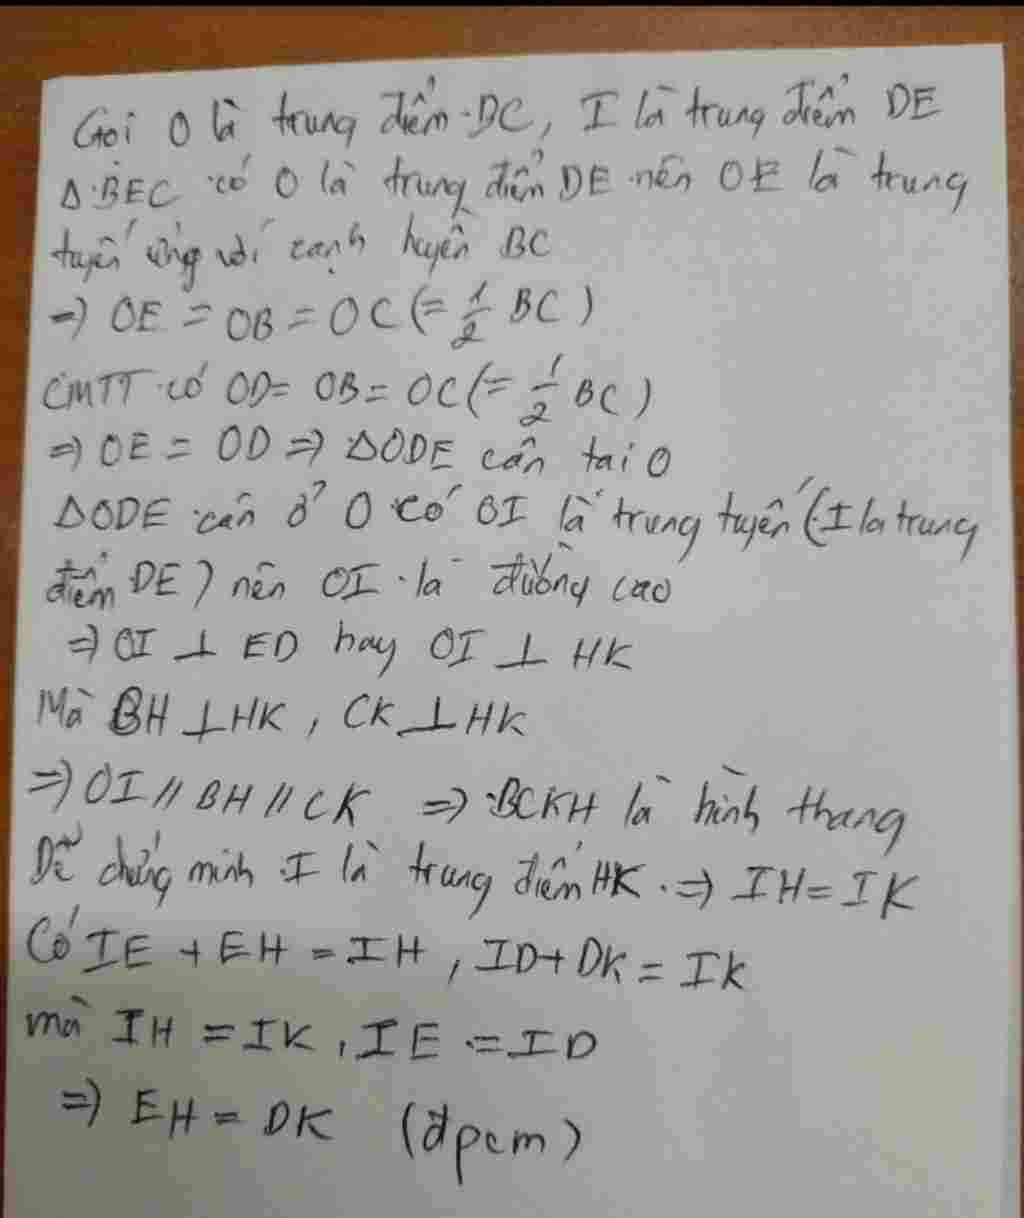 Gọi O là trung điểm BC, I là trung điểm DE
Δ BEC có O là trung điểm DE nên OE là trung
tuyến ứng với cạnh huyền BC
=> OE = OB = OC (= 1/2 BC)
CMTT có OD = OB = OC (= 1/2 BC)
=> OE = OD => ΔODE cân tai O
ΔODE cân ở O có OI là trung tuyến (I la trung
điểm DE) nên OI là đường cao
=> OI ⊥ ED hay OI ⊥ HK
Mà BH ⊥ HK, CK ⊥ HK
=> OI // BH // CK => BCKH là hình thang
Dễ chứng minh I là trung điểm HK => IH = IK
Có IE + EH = IH, ID + DK = IK
mà IH = IK, IE = ID
=> EH = DK (đpcm)